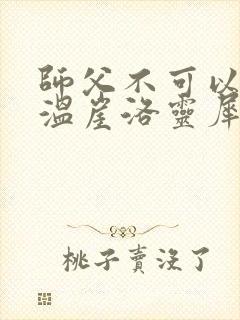 師父不可以
溫崖洛靈犀
桃子賣沒了